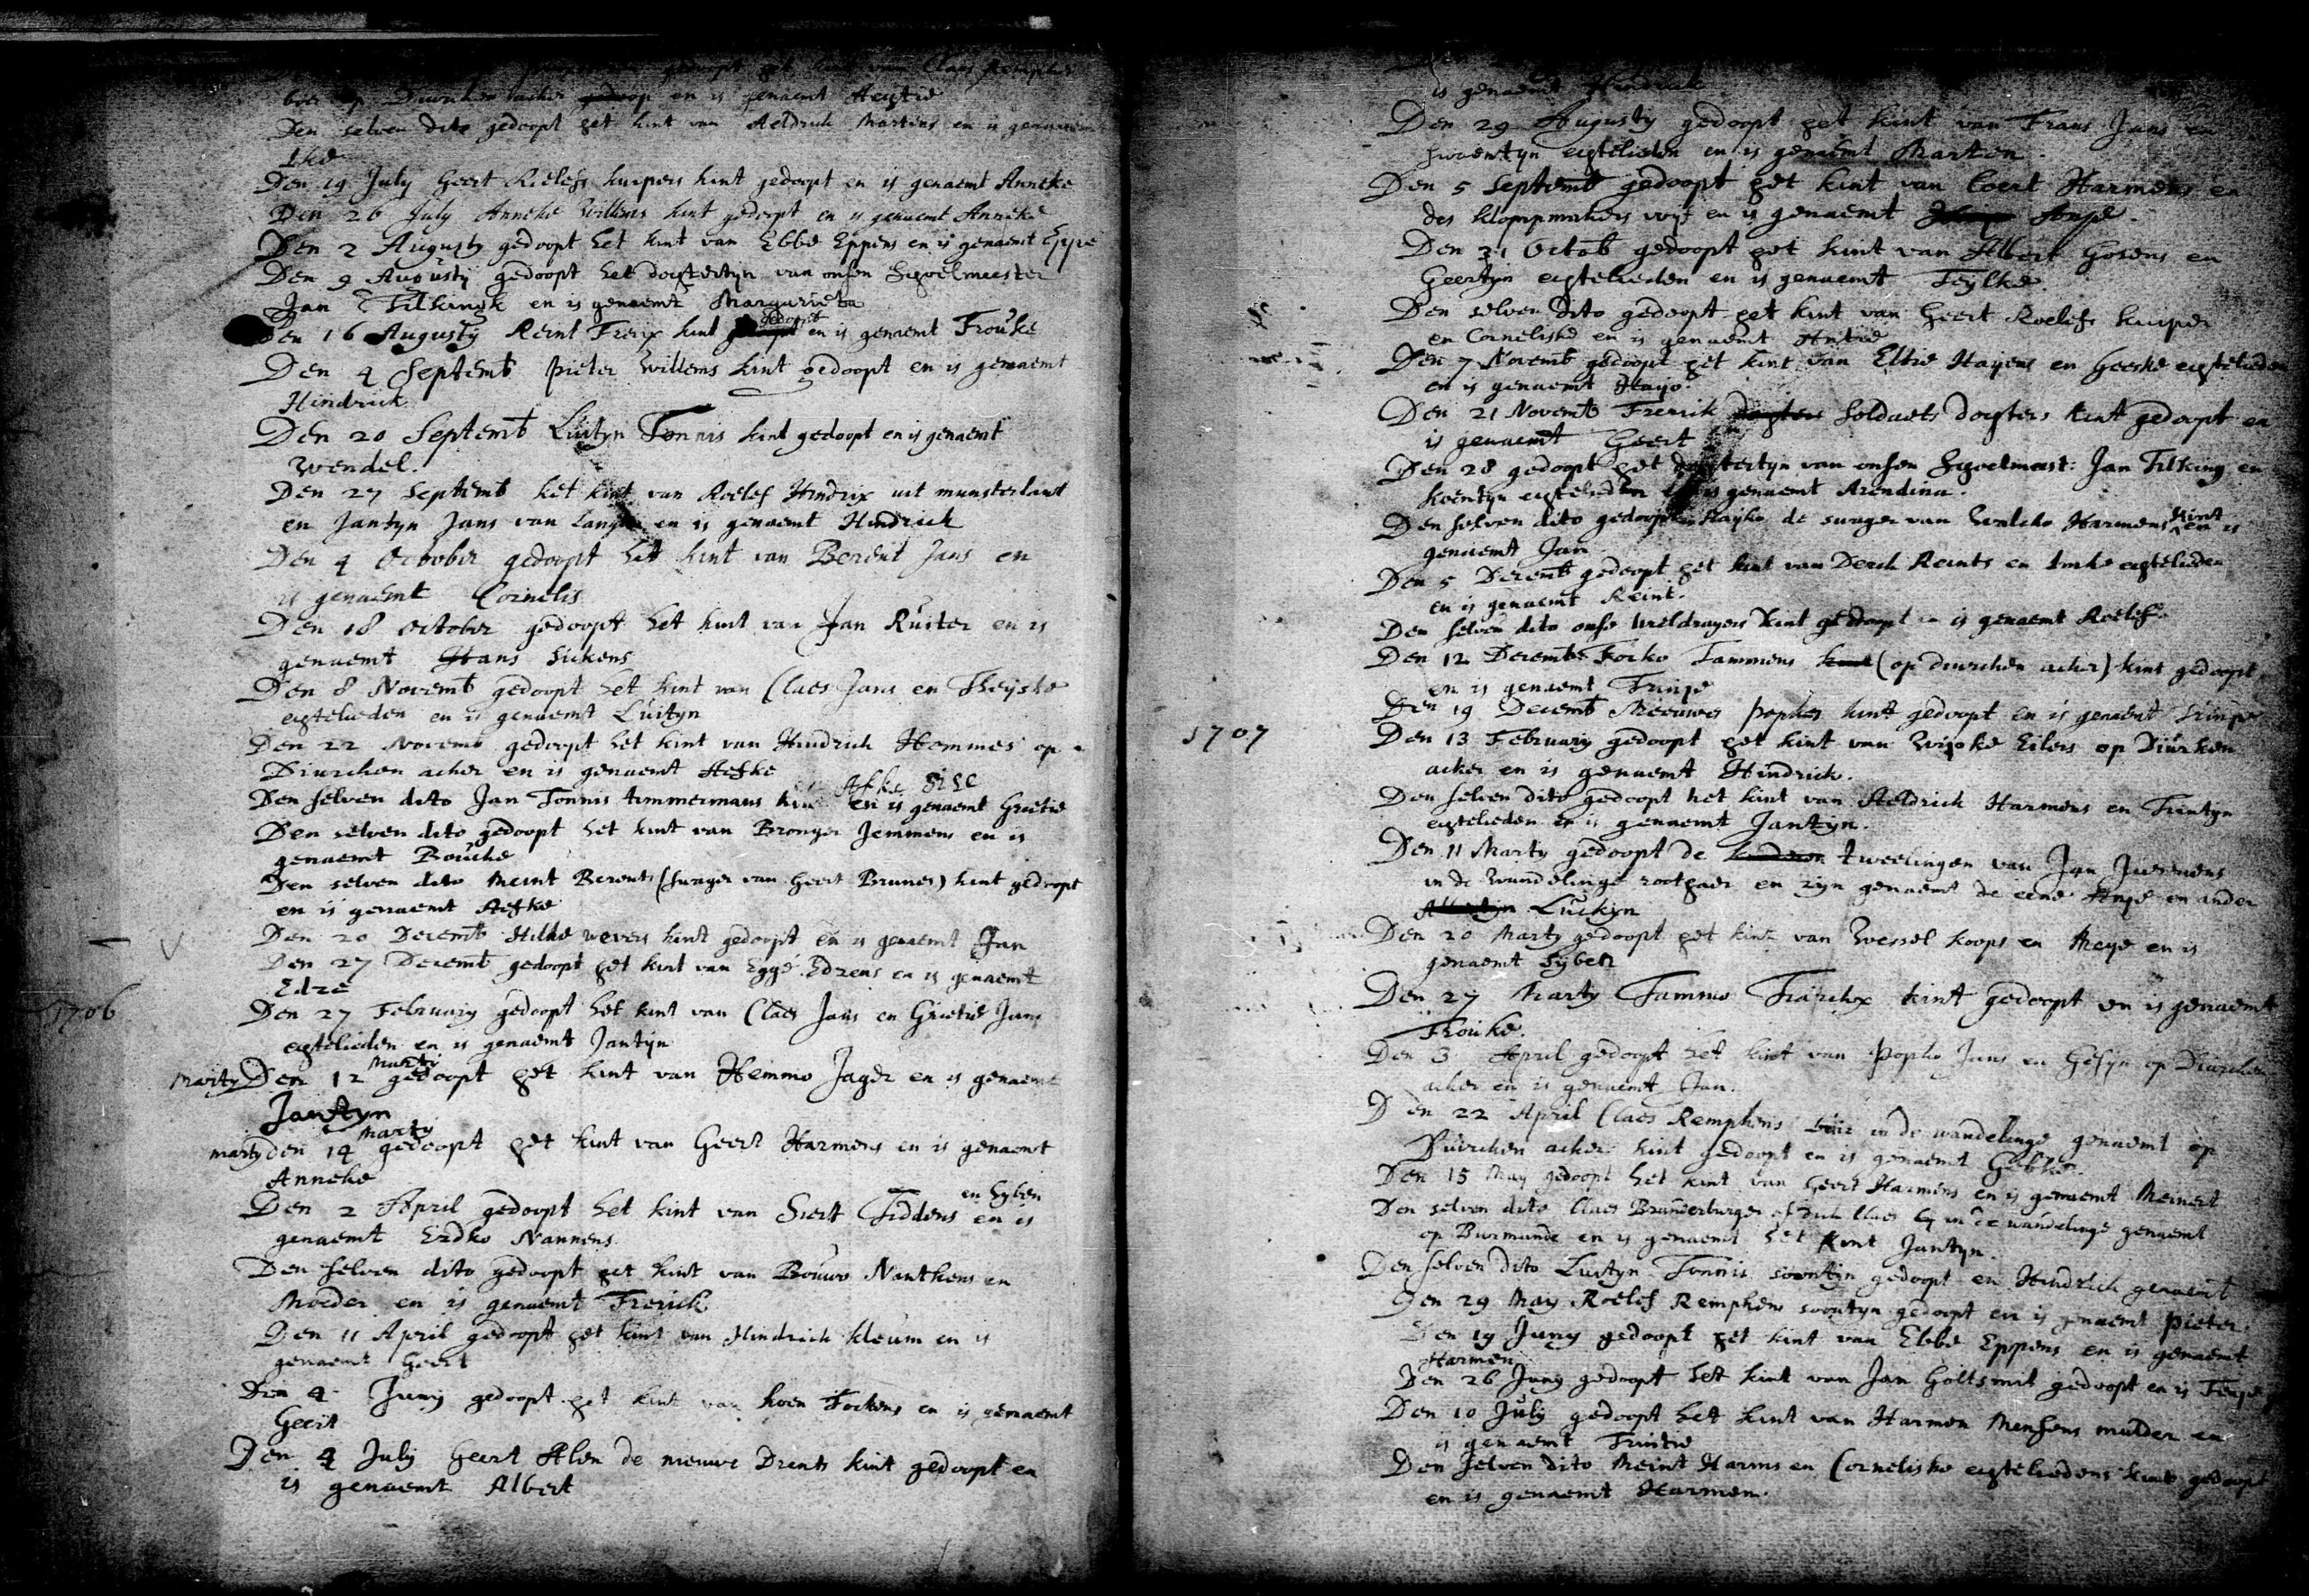 gedoopt het kint van Claes Remphens
boer op Diurcken acker en is genaemt Heyltie
Den selven dito gedoopt het kint van Aeldrick Martens en is genaemt
Ike
Den 19 July Geert Roelefs kuipers kint gedoopt en is genaemt Anneke
Den 26 July Anneke Willems kint gedoopt en is genaemt Anneke
Den 2 Augusty gedoopt het kint van Ebbe Eppens en is genaemt Eppe
Den 9 Augusty gedoopt het dogtertyn van onsen Schoelmeester
Jan Tilkingk en is genaemt Margarieta
Den 16 Augusty Reint Frerix kint gedoopt en is genaemt Frouke
Den 4 Septemb Pieter Willems kint gedoopt en is genaemt
Hindrick
Den 20 Septemb Luityn Tonnis kint gedoopt en is genaemt
Wendel.
Den 27 Septemb het kint van Roelef Hindrix uit munsterlant
en Jantyn Jans van en is genaemt Hindrick
Den 4 October gedoopt het kint van Berent Jans en
is genaemt Cornelis
Den 18 October gedoopt het kint van Jan Ruiter en is
genaemt Hans Sickens
Den 8 Novemb gedoopt het kint van Claes Jans en Theyske
egtelieden en is genaemt Luityn
Den 22 Novemb gedoopt het kint van Hindrick Hemmes op
Diurcken acker en is genaemt Aefke
Afke
Den selven dito Jan Tonnis timmermans kint en is genaemt Grietie
Den selven dito gedoopt het kint van Bronger Jemmens en is
genaemt Bouche
Den selven dito Meint Berents (swager van Geert Bruner) kint gedoopt
en is genaemt Aefke
Den 20 Decemb Hilke wevers kint gedoopt en is genaemt Jan
Den 27 Decemb gedoopt het kint van Egge Edzens en is genaemt
Edze
1706
Den 27 February gedoopt het kint van Claes Jans en Grietie Jans
egtelieden en is genaemt Jantyn
Marty
Marty Den 12 gedoopt het kint van Hemmo Jager en is genaemt
Jantyn
Marty
Marty den 14 gedoopt het kint van Geert Harmens en is genaemt
Anneke
Den 2 April gedoopt het kint van Siert Fiddens en Syben en is
genaemt Eedko Nannens
Den selven dito gedoopt het kint van Bouwo Nanthens en
Moeder en is genaemt Frerick
Den 11 April gedoopt het kint van Hindrick kleum en is
genaemt Geert
Den 4 Juny gedoopt het kint van koen Fockens en is genaemt
Geert
Den 4 July Geert Alen de nieuwe Drents kint gedoopt en
is genaemt Albert
is genaemt Hindrick
Den 29 Augusty gedoopt het kint van Frans Jans en
Swaentyn egtelieden en is genaemt Marten.
Den 5 Septemb gedoopt het kint van Coert Harmens en
des klompmakers wyf en is genaemt
Den 31 Octob gedoopt het kint van Albert Gosens en
Geertyn egtelieden en is genaemt Feylke.
Den selven dito gedoopt het kint van Geert Roelefs kuiper
en Corneliske en is genaemt Antie
Den 7 Novemb gedoopt het kint van Eltie Hayens en Geeske egtelieden
en is genaemt Hayo.
Den 21 Novemb Frerrik dogters Soldaets dogters kint gedoopt en
is genaemt Geert
Den 28 gedoopt het dogtertyn van onsen Schoelmeest: Jan Tilking en
koentyn egtelieden en is genaemt Arendina.
Den selven dito gedoopt Hayko de swager van Walcko Harmens kint en is
genaemt Jan
Den 5 Decemb gedoopt het kint van Derck Reints en Imke egtelieden
en is genaemt Reint.
Den selven dito onse kint gedoopt en is genaemt Roelef.
Den 12 Decemb Focko Tammens kint (op diurcken acker) kint gedoopt
en is genaemt Trintje
Den 19 Decemb Meeuwes Popkes kint gedoopt en is genaemt
1707
Den 13 February gedoopt het kint van Wipke Eilers op Diurken
acker en is genaemt Hindrick.
Den selven dito gedoopt het kint van Aeldrick Harmens en Trintyn
egtelieden en is genaemt Jantyn.
Den 11 Marty gedoopt de kinderen tweelingen van Jan Juermens
in de wandelinge roothaer en zyn genaemt de eene Antje en ander
Luckyn
Den 20 Marty gedoopt het kint van Wessel koops en Meye en is
genaemt Syben
Den 27 Marty Tammo Frerickx kint gedoopt en is genaemt
Frouke.
Den 3 April gedoopt het kint van Popko Jans en Gesyn op Diurcken
acker en is genaemt Jan.
Den 22 April Claes Remphens boer in de wandelinge genaemt op
Diurcken acker kint gedoopt en is genaemt Gebke.
Den 15 May gedoopt het kint van Geert Harmens en is genaemt Meinert
Den selven dito Claes Brandenburger of dick Claes in de wandelinge genaemt
op Burmande en is genaemt het kint Jantyn.
Den selven dito Luityn Tonnis soontyn gedoopt en Hindrick genaemt
Den 29 May Roelef Remphens soontyn gedoopt en is genaemt Pieter.
Den 19 Juny gedoopt het kint van Ebbe Eppens en is genaemt
Harmen
Den 26 Juny gedoopt het kint van Jan Goltsmit gedoopt en is
Den 10 July gedoopt het kint van Harmen Mensens mulder en
is genaemt Trintie
Den selven dito Meint Harms en Corneliske egteliedens kint gedoopt
en is genaemt Harmen.